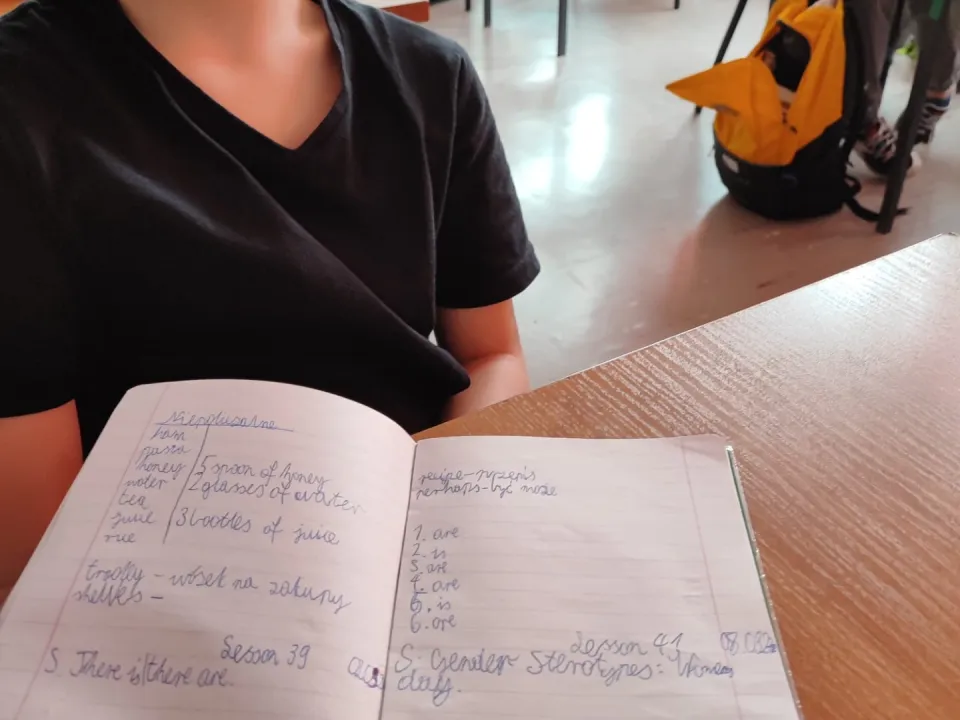 Niepoliczalne
ham
pasta
honey 5 spoon of honey
water 2 glasses of water
tea
juice 3 bottles of juice
rice
trolly - wózek na zakupy
shelvels -
Lesson 39
S. There is/there are.
recipe - przepis
perhaps - być może
1. are
2. is
3. are
4. are
5. is
6. are
Lesson 41
S: Gender Sterotypes: Womens
day.